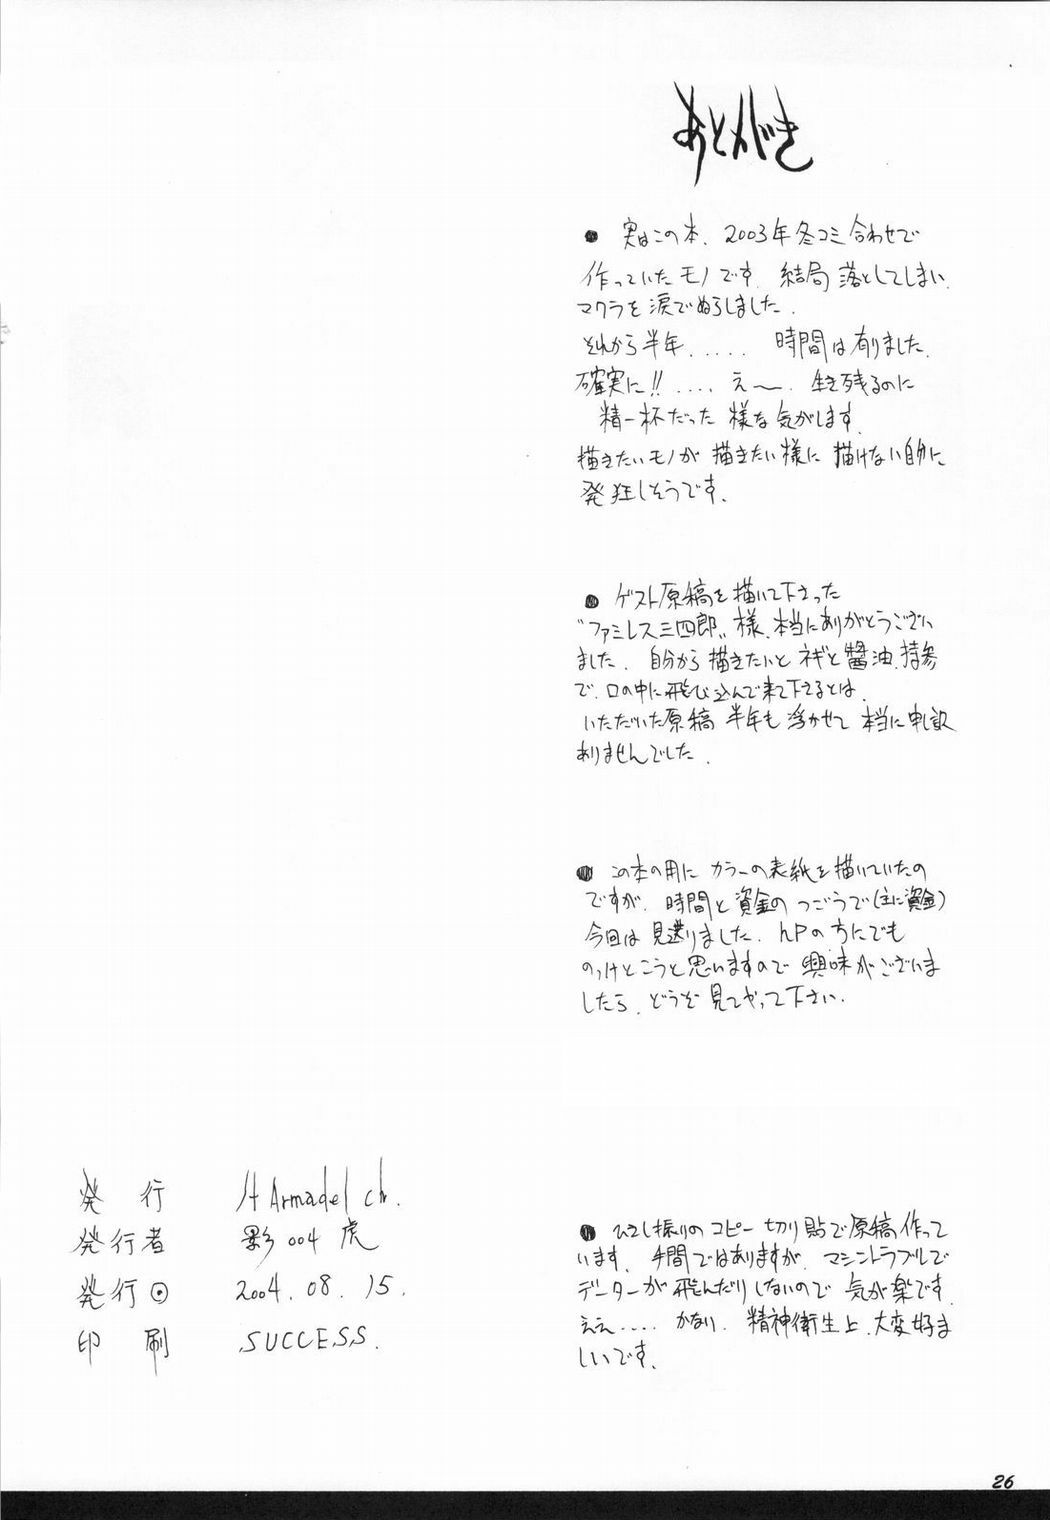 あとがき
● 実はこの本、2003年冬コミ合わせで
作っていたモノです。結局落としてしまい、
マクラを涙でぬらしました。
それから半年..... 時間は有りました。
確実に!!.... え〜、生き残るのに
精一杯だった様な気がします。
描きたいモノが描きたい様に描けない自分に
発狂しそうです。
● ゲスト原稿を描いて下さった
“ファミレス三四郎„様、本当にありがとうござい
ました。自分から描きたいとネギと醤油、持参
で、口の中に飛び込んで来て下さるとは、
いただいた原稿 半年も浮かせて本当に申し訳
ありませんでした。
● この本の用にカラーの表紙を描いていたの
ですが、時間と資金のつごうで(主に資金)
今回は見送りました。hPの方にでも
のっけとこうと思いますので興味がございま
したら、どうぞ見てやって下さい。
● ひさし振りのコピー切り貼で原稿作って
います。手間ではありますが、マシントラブルで
データーが飛んだりしないので気が楽です。
ええ.... かなり、精神衛生上、大変好ま
しいです。
発 行 Armadel ch.
発行者 影004虎
発行日 2004.08.15.
印 刷 SUCCESS.
26